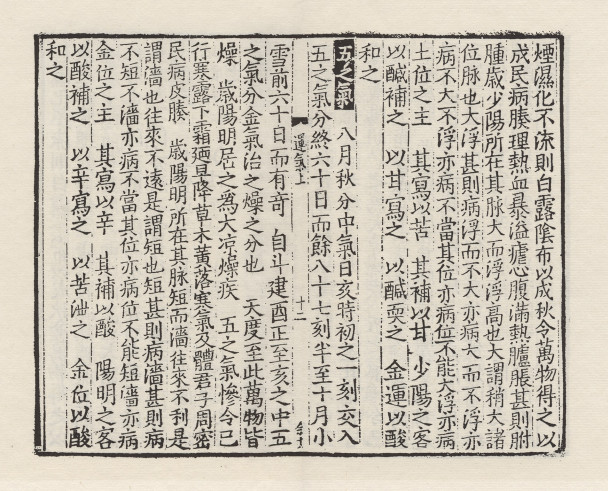 煙濕化不流則白露陰布以成秋令萬物得之以
成民病腠理熱血暴溢瘧心腹滿熱臚脹甚則胕
腫歲少陽所在其脉大而浮浮高也大謂稍大諸
位脉也大浮甚則病浮而不大亦病大而不浮亦
病不大不浮亦病不當其位亦病位不能大浮亦病
土位之主 其寫以苦 其補以甘 少陽之客
以鹹補之 以甘寫之 以鹹耎之 金運以酸
和之
五之氣 八月秋分中氣日亥時初之一刻交入
五之氣分終六十日而餘八十七刻半至十月小
運氣上 十二
雪前六十日而有奇 自斗建酉正至亥之中五
之氣分金氣治之燥之分也 天度至此萬物皆
燥 歲陽明居之爲大凉燥疾 五之氣慘令已
行寒露下霜廼早降草木黃落寒氣及體君子周密
民病皮腠 歲陽明所在其脉短而濇往來不利是
謂濇也往來不遠是謂短也短甚則病濇甚則病
不短不濇亦病不當其位亦病位不能短濇亦病
金位之主 其寫以辛 其補以酸 陽明之客
以酸補之 以辛寫之 以苦泄之 金位以酸
和之